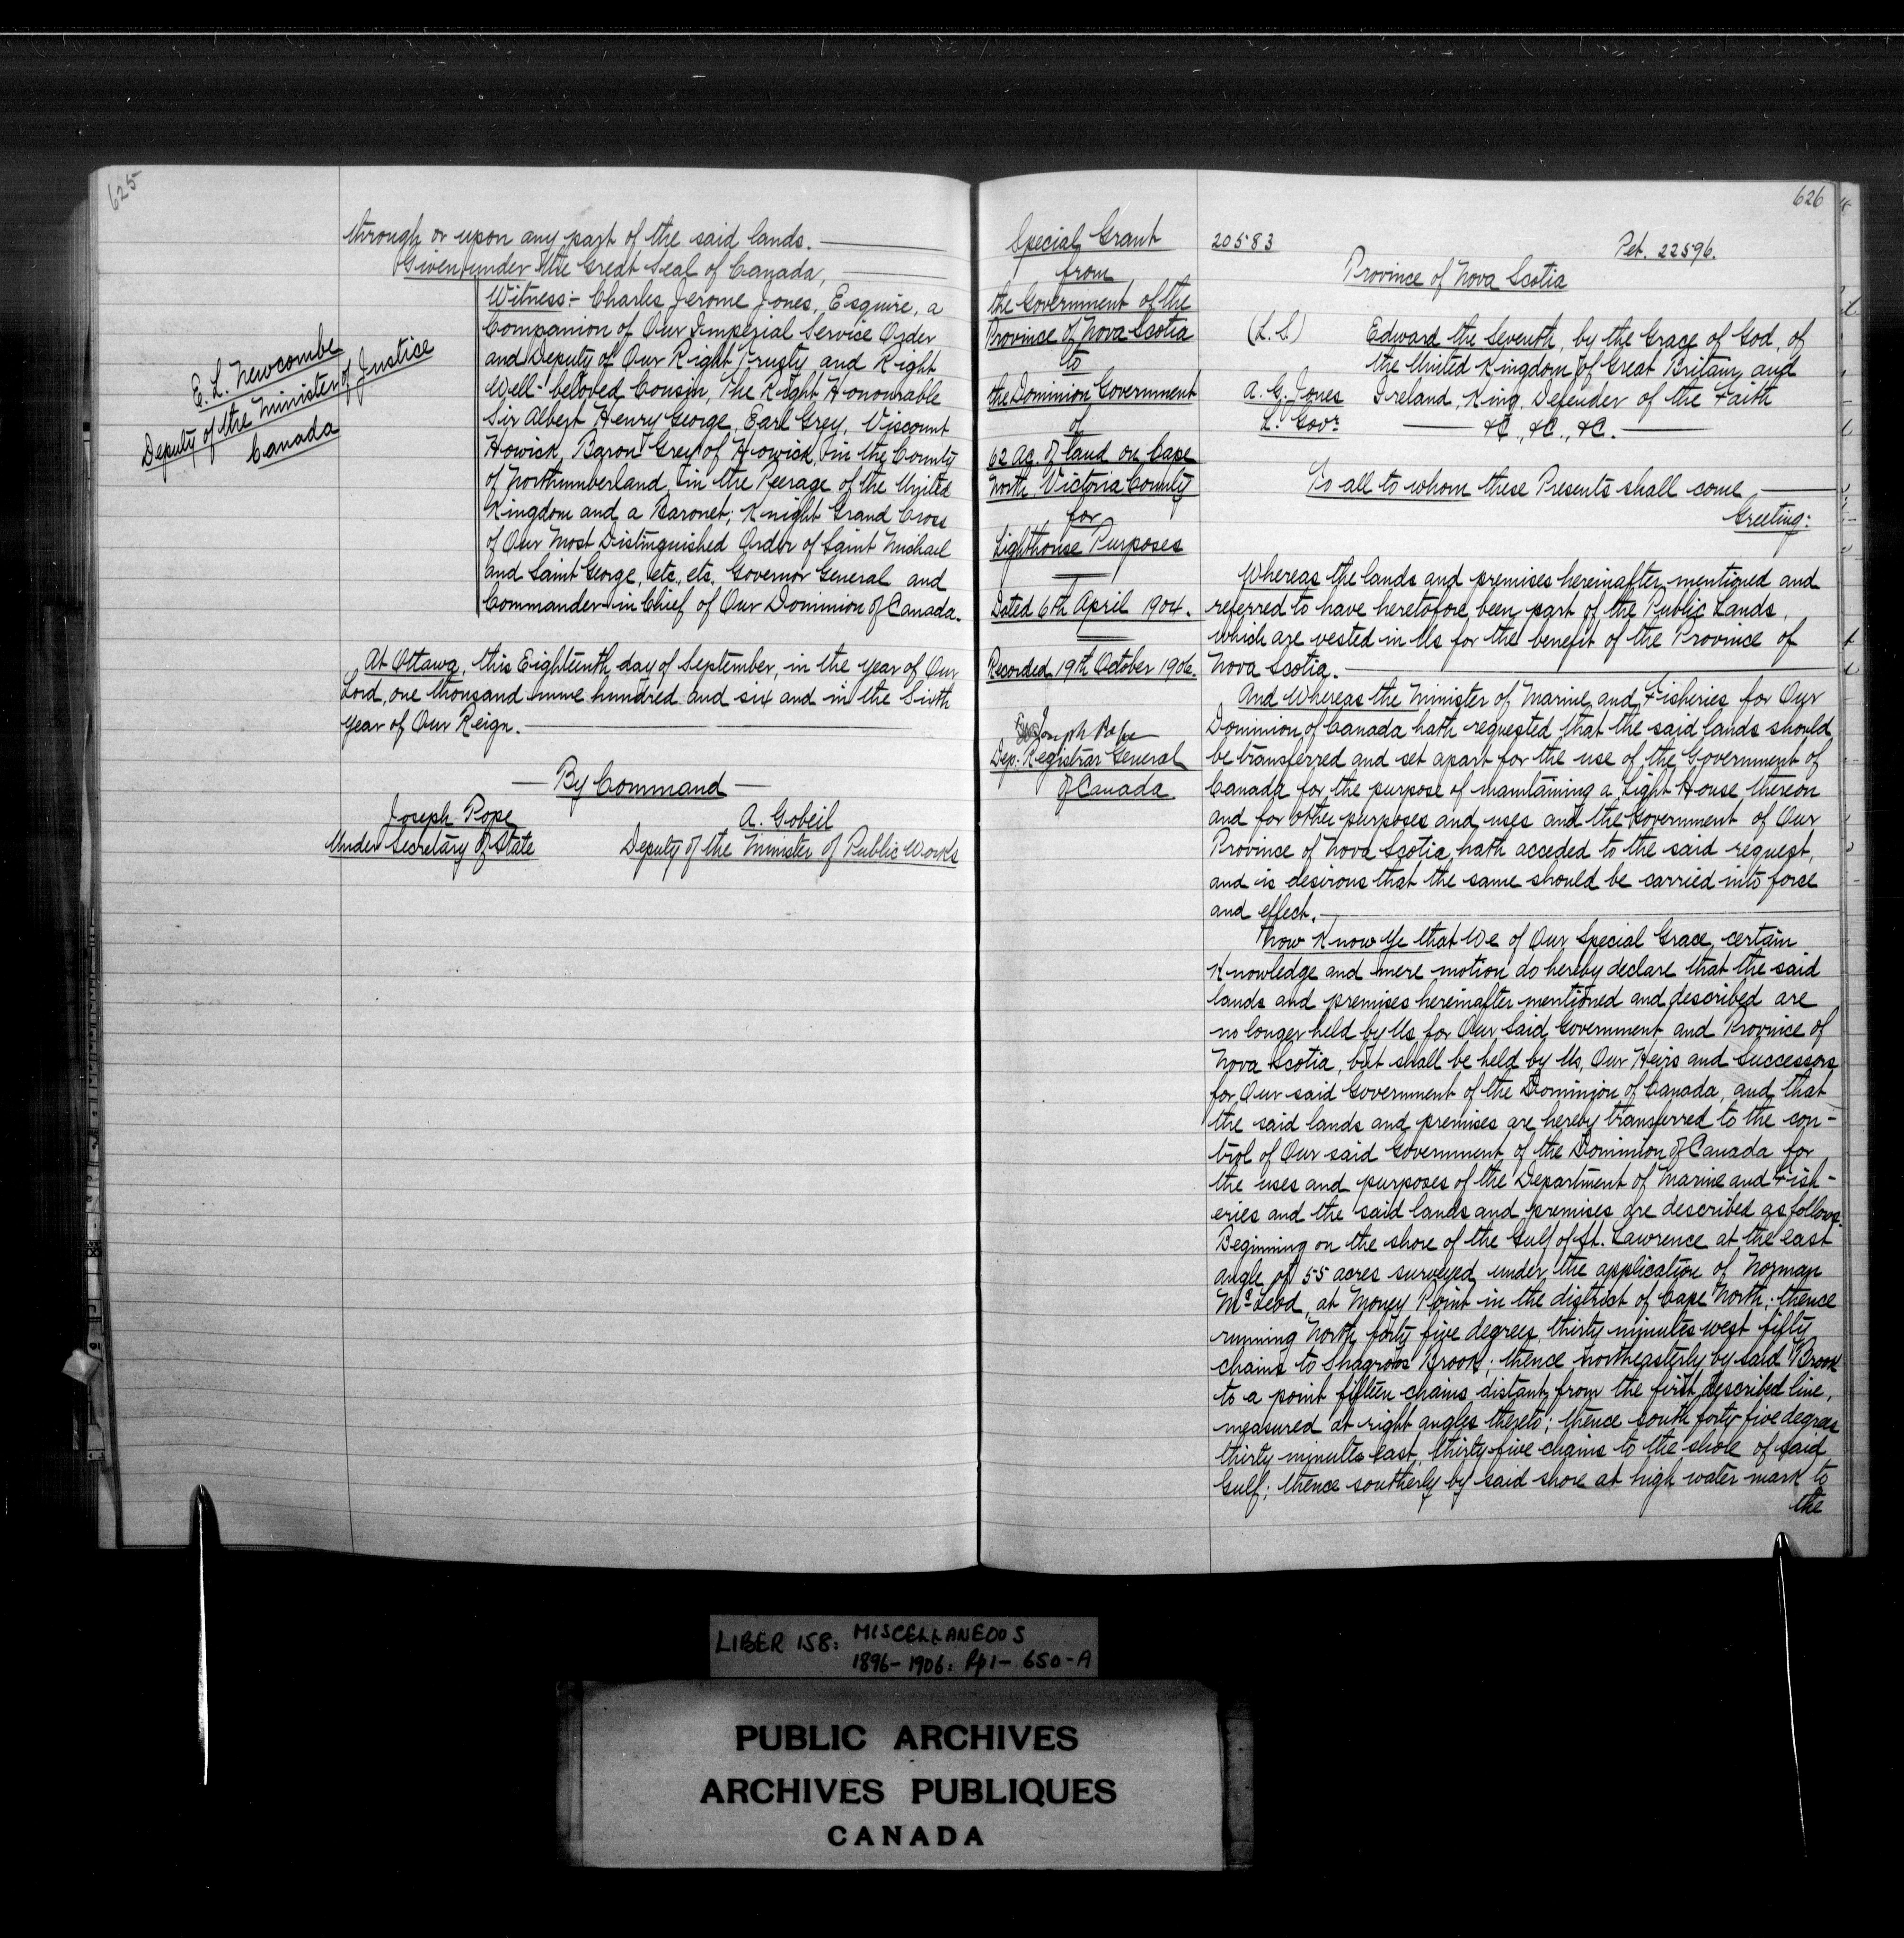 625
through or upon any part of the said lands.
Given under the Great Seal of Canada,
Witness:- Charles Jerome Jones, Esquire, a
Companion of Our Imperial Service Order
and Deputy of Our Right Trusty and Right
Well-beloved Cousin, The Right Honourable
Sir Albert Henry George, Earl Grey, Viscount
Howick, Baron Grey of Howick, in the County
of Northumberland, in the Peerage of the United
Kingdom and a Baronet; Knight Grand Cross
of Our Most Distinguished Order of Saint Michael
and Saint George, etc., etc. Governor General and
Commander in Chief of Our Dominion of Canada.
E. L. Newcombe
Deputy of the Minister of Justice
Canada
At Ottawa, this Eighteenth day of September, in the year of Our
Lord, one thousand nine hundred and six and in the Sixth
year of Our Reign.
— By Command —
Joseph Pope
Under Secretary of State
A. Gobeil
Deputy of the Minister of Public Works
626
Special Grant
from
the Government of the
Province of Nova Scotia
to
the Dominion Government
of
62 ac. of land on Cape
North Victoria County
for
Lighthouse Purposes
Dated 6th April 1904.
Recorded 19th October 1906.
Joseph Pope
Dep. Registrar General
of Canada
20583
Pet. 22596.
Province of Nova Scotia
(L.S.) Edward the Seventh, by the Grace of God, of
the United Kingdom of Great Britain and
A. G. Jones Ireland, King, Defender of the Faith
L. Govr. &c., &c., &c.
To all to whom these Presents shall come
Greeting:
Whereas the lands and premises hereinafter mentioned and
referred to have heretofore been part of the Public Lands,
which are vested in Us for the benefit of the Province of
Nova Scotia.
And Whereas the Minister of Marine and Fisheries for Our
Dominion of Canada hath requested that the said lands should
be transferred and set apart for the use of the Government of
Canada for the purpose of maintaining a Light House thereon
and for other purposes and uses and the Government of Our
Province of Nova Scotia hath acceded to the said request,
and is desirous that the same should be carried into force
and effect.
Now Know Ye that We of Our Special Grace, certain
Knowledge and mere motion do hereby declare that the said
lands and premises hereinafter mentioned and described are
no longer held by Us for Our said Government and Province of
Nova Scotia, but shall be held by Us, Our Heirs and Successors
for Our said Government of the Dominion of Canada, and that
the said lands and premises are hereby transferred to the con-
trol of Our said Government of the Dominion of Canada for
the uses and purposes of the Department of Marine and Fish-
eries and the said lands and premises are described as follows.
Beginning on the shore of the Gulf of St. Lawrence at the east
angle of 55 acres surveyed under the application of Norman
McLeod, at Money Point in the district of Cape North; thence
running North forty five degrees, thirty minutes west fifty
chains to Brook; thence northeasterly by said Brook
to a point fifteen chains distant from the first described line,
measured at right angles thereto; thence south forty five degrees
thirty minutes east, thirty five chains to the shore of said
Gulf; thence southerly by said shore at high water mark to
the
LIBER 158: MISCELLANEOUS
1896-1906: Pp1-650-A
PUBLIC ARCHIVES
ARCHIVES PUBLIQUES
CANADA